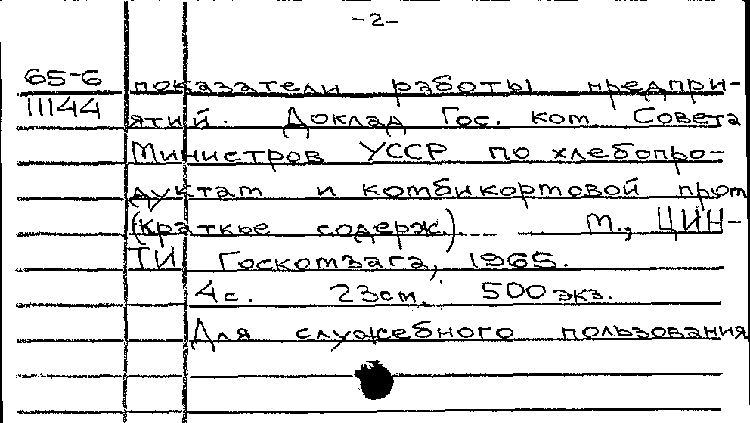 -2-
65-6 показатели работы предпри-
11144 ятий. Доклад Гос. ком Совета
Министров УССР по хлебопро-
дуктам и комбикормовой пром
(краткое содерж.) М., ЦИН-
ТИ Госкомзага, 1965.
4с. 23см. 500 экз.
Для служебного пользования